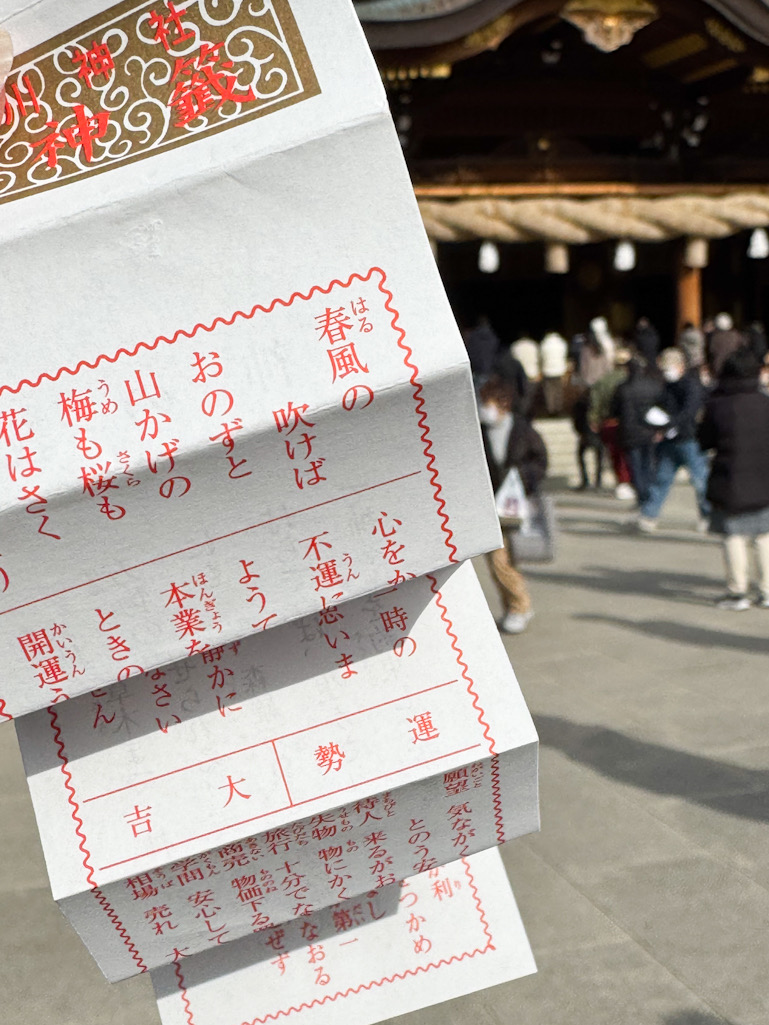 川神社
神籤
春風の
吹けば
おのずと
山かげの
梅も桜も
花はさく
心を
一時の
不運に
思いま
ようて
本業を
静かに
なさい
ときの
開運
運勢
大吉
願望 気ながく
とのう
待人 来るがお
失物 物にかく
旅行 十分で
商売 物価下る
学問 安心して
相場 売れ 大
利
つかめ
第一
なおる
ぜず